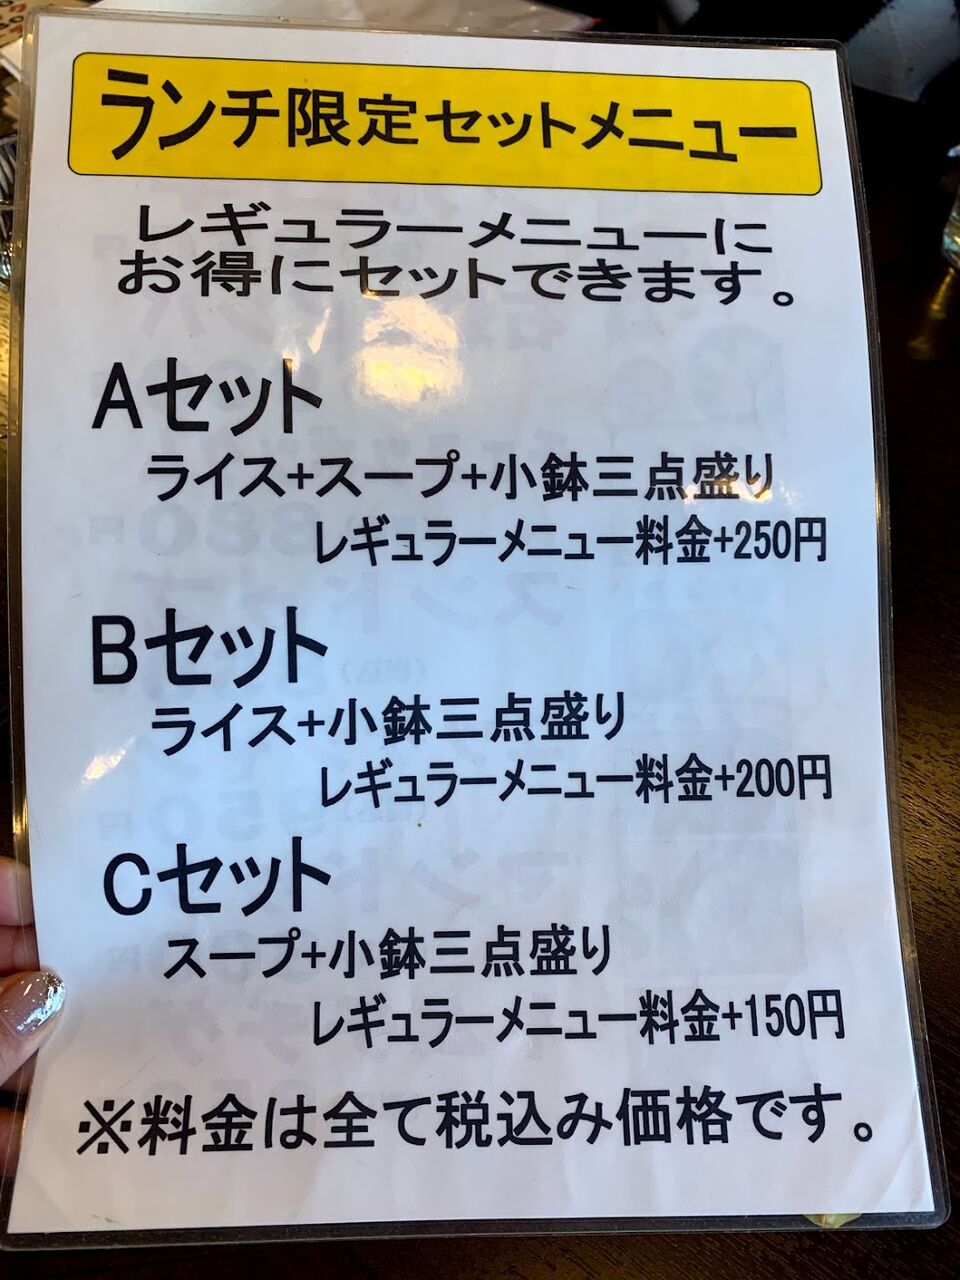 ランチ限定セットメニュー
レギュラーメニューに
お得にセットできます。
Aセット
ライス+スープ+小鉢三点盛り
レギュラーメニュー料金+250円
Bセット
ライス+小鉢三点盛り
レギュラーメニュー料金+200円
Cセット
スープ+小鉢三点盛り
レギュラーメニュー料金+150円
※料金は全て税込み価格です。